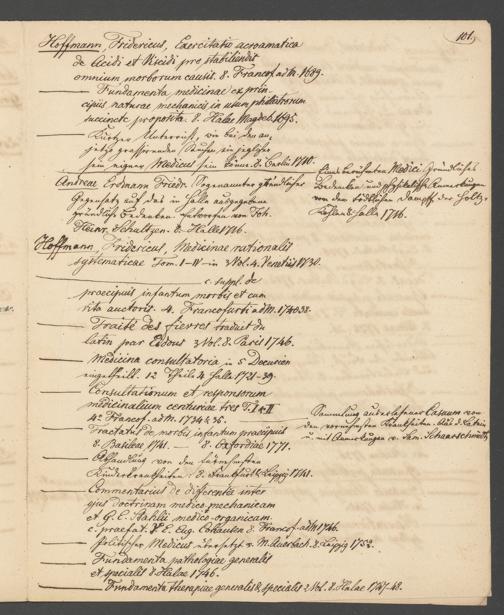 101.
Hoffmann, Fridericus, Exercitatio acroamatica
de Acidi et Viscidi pro stabiliendis
omnium morborum causis. 8. Francof. ad M. 1689.
——— Fundamenta medicinae ex prin-
cipiis naturae mechanicis in usum philiatrorum
succincte proposita. 8. Halae Magdeb. 1695.
——— Kurtzer Unterricht, wie bei den an-
jetzo grassirenden Seuchen ein jeglicher
sein eigner Medicus sein könne. 8. Berlin 1710.
Andreae Erdmann Friedr. Sogenannter gründlicher
Gegensatz auf das in Halle ausgegebene
gründliche Bedenken entworfen von Joh.
Heinr. Schultzen. 8. Halle 1746.
Eines berühmten Medici Gründliches
Bedenken und physikalische Anmerkungen
von dem tödtlichen Dampff der Holtz-
Kohlen. Halle 1716.
Hoffmann, Fridericus, Medicinae rationalis
systematicae Tom. I-IV in 3 Vol. 4. Venetiis 1730.
——— c. suppl. de
praecipuis infantum morbis et cum
vita auctoris. 4. Francofurti ad M. 1738.
——— Traité des fievres traduit du
latin par Eidous 3 Vol. 8. Paris 1746.
——— Medicina consultatoria in 5 Decurien
eingetheilt. 12 Theile 4. Halle 1721-39.
——— Consultationum et responsorum
medicinalium centuriae tres T. I & II
4º Francof. ad M. 1734 & 35.
——— Tractatus de morbis infantum praecipuis
8. Basileae 1741. — 8. Oxfordiae 1771.
——— Abhandlung von den fürnehmsten
Kinderkrankheiten. 8. Frankfurt & Leipzig 1741.
Sammlung auserlesener Casuum von
den vornehmsten Krankheiten. Aus d. Latein
u. mit Anmerkungen v. Sam. Schaarschmidt
——— Commentarius de differentia inter
ejus doctrinam medico-mechanicam
et G. E. Stahlii medico-organicam.
c. praefat. Eug. Cohausen 8. Francof. ad M. 1746.
——— Politischer Medicus übersetzt v. M. Auerbach. 8. Leipzig 1752.
——— Fundamenta pathologiae generalis
et specialis 8. Halae 1746.
——— Fundamenta therapiae generalis & specialis 2 Vol. 8. Halae 1747-48.